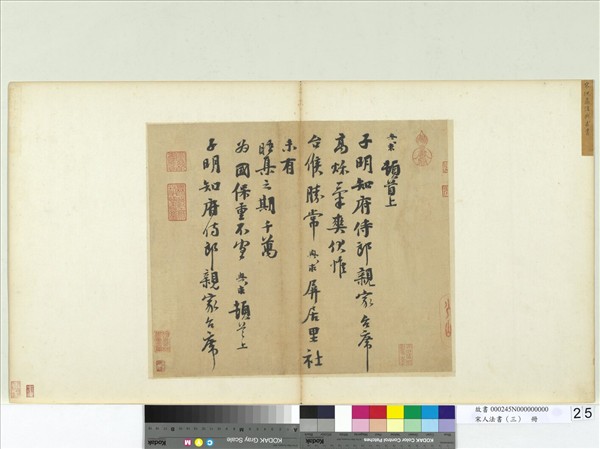 頓首上
子明知府侍郎親家台席
高秋氣爽伏惟
台候勝常 屏居里社
未有
晤集之期千萬
為國保重不宣 頓首上
子明知府侍郎親家台席
故書 000245N000000000
宋人法書(三) 冊
25
KODAK Gray Scale
KODAK Color Control Patches